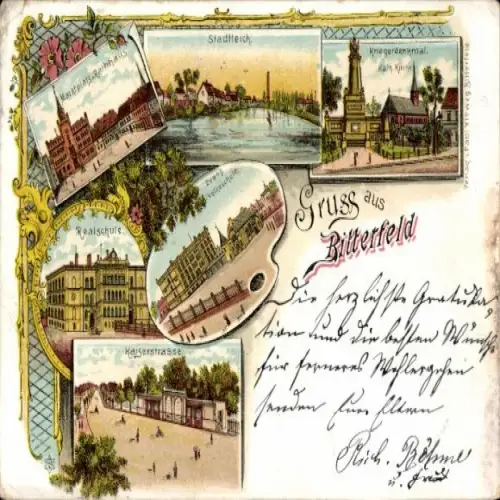 Stadtteich.
Kriegerdenkmal.
Kath. Kirche
Realschule.
Kaiserstrasse.
Gruss aus
Bitterfeld
Die herzlichste Gratula-
tion und die besten Wünsche
für ferneres Wohlergehen
senden Eure Eltern
Rich. Böhme
u. Frau